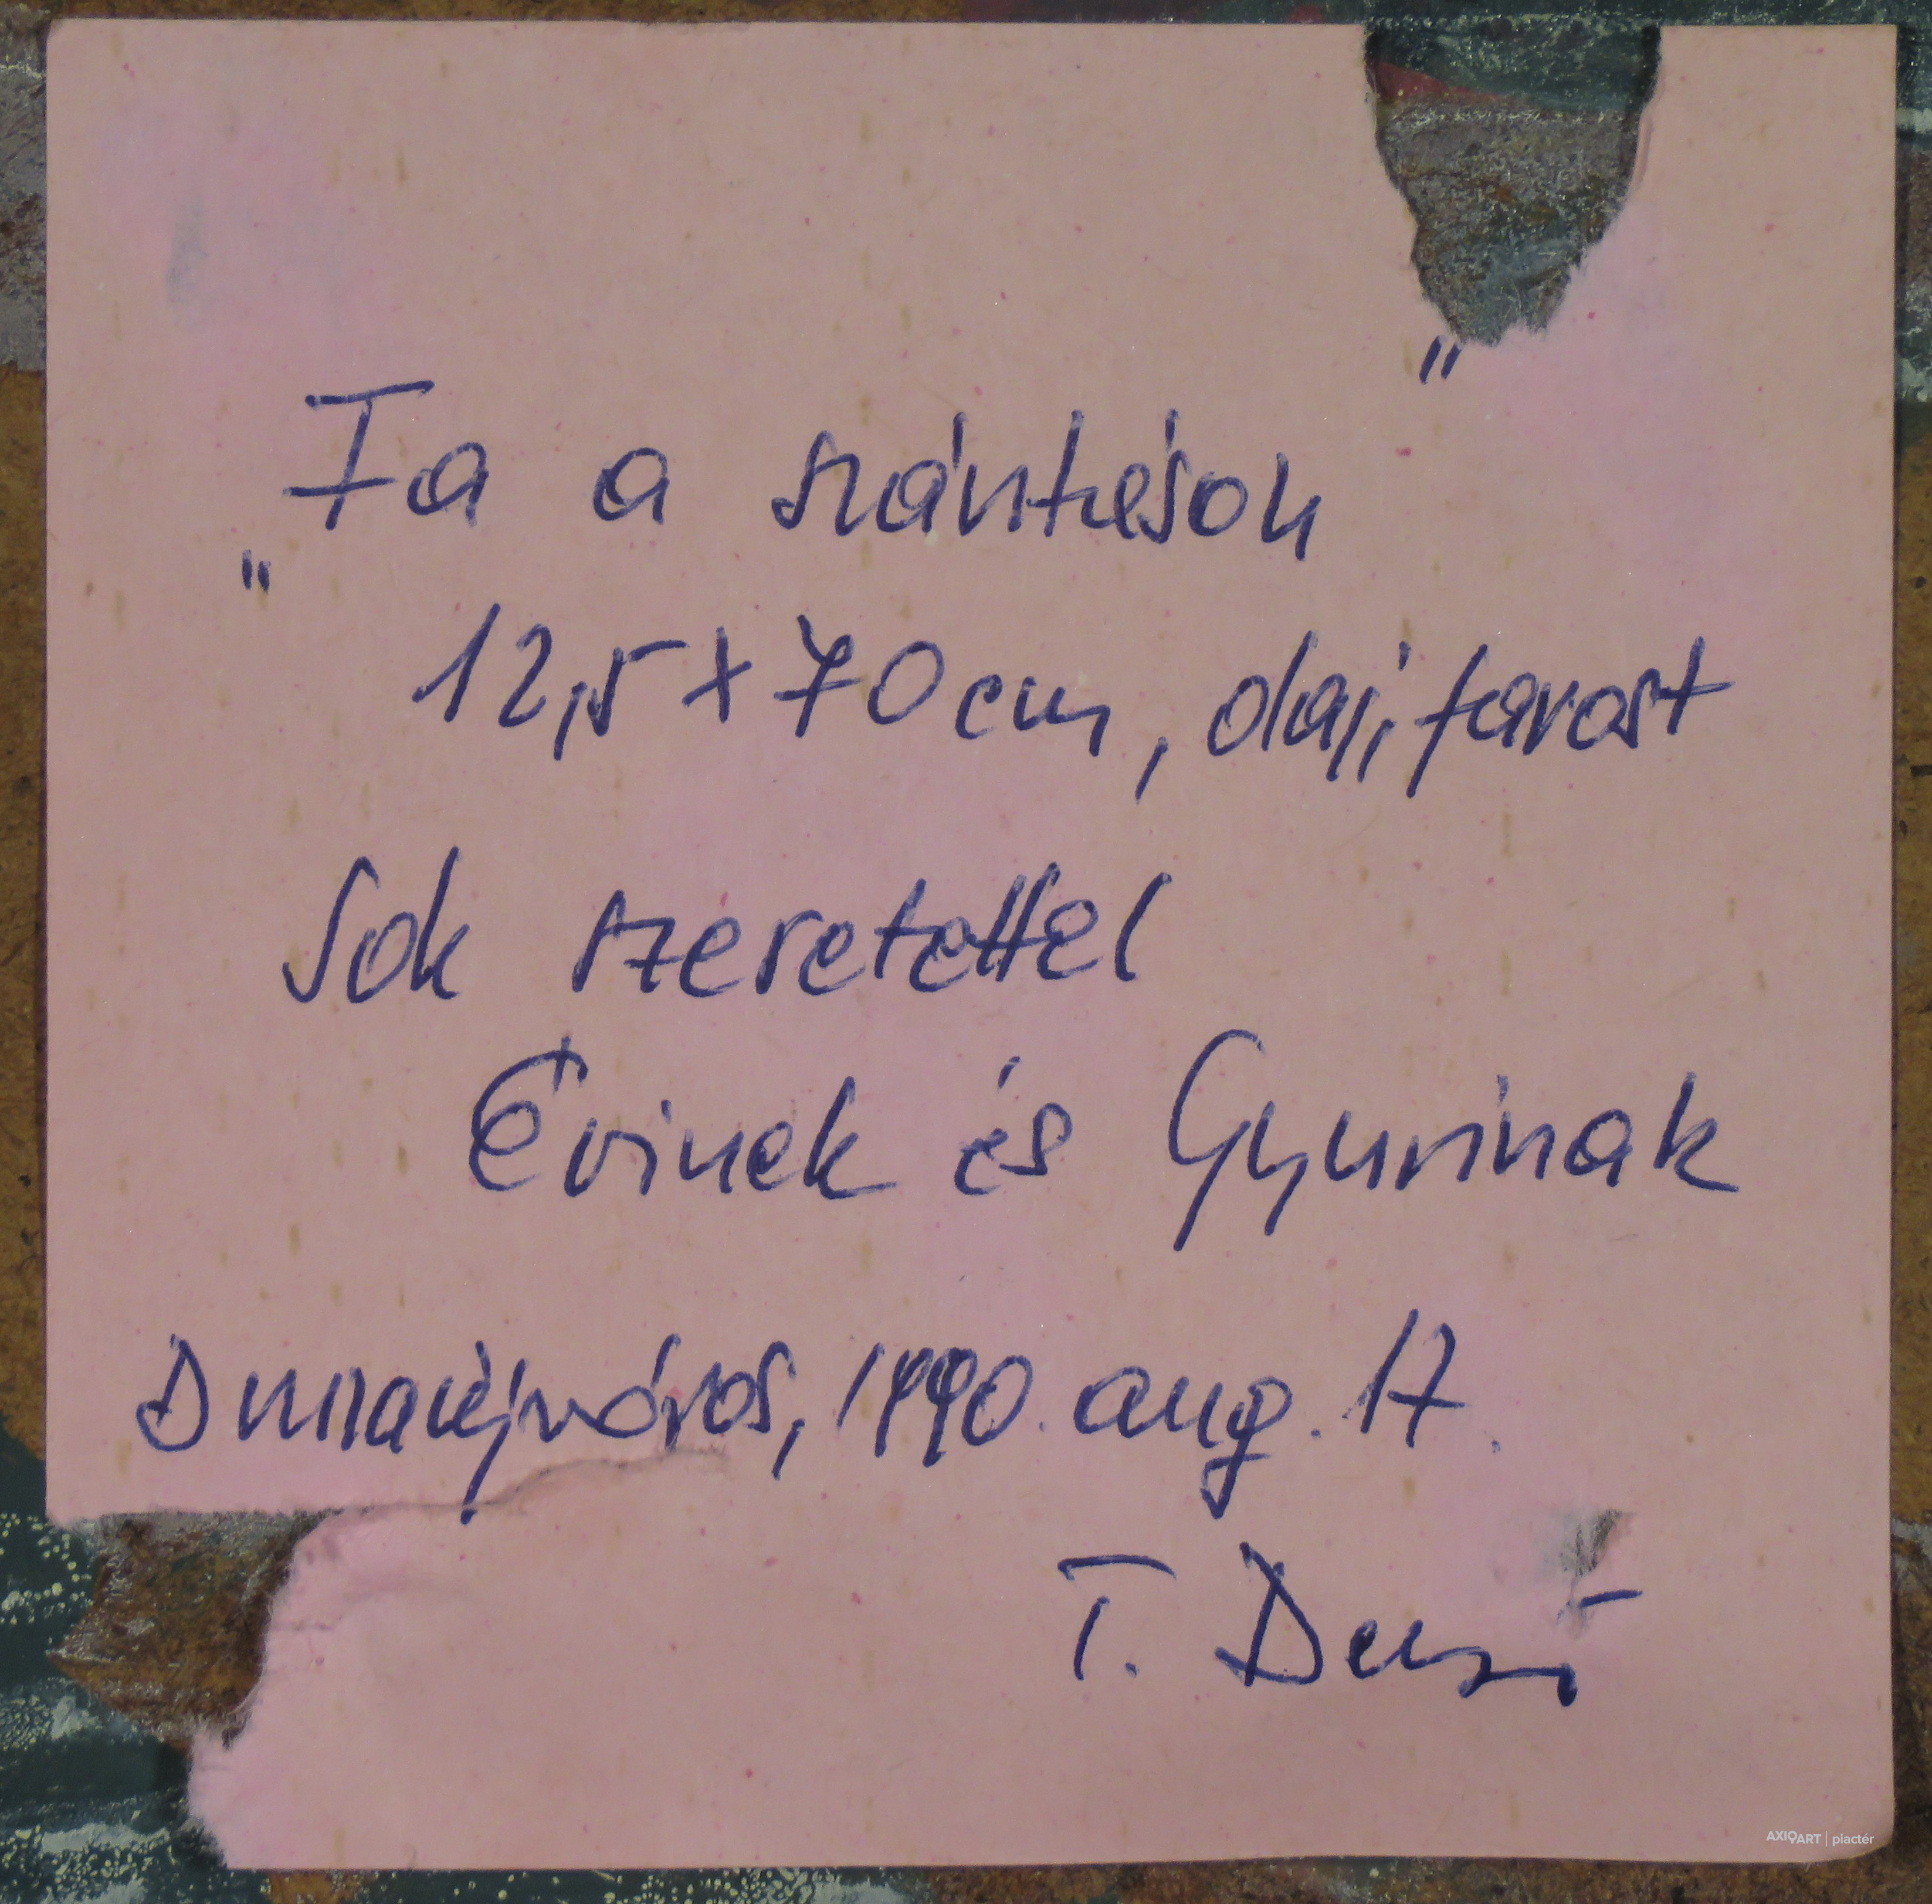 „Fa a szántáson"
12,5 x 70 cm, olaj, farost
Sok szeretettel
Évinek és Gyurinak
Dunaújváros, 1990. aug. 17.
T. Dezső
AXIOART | piactér